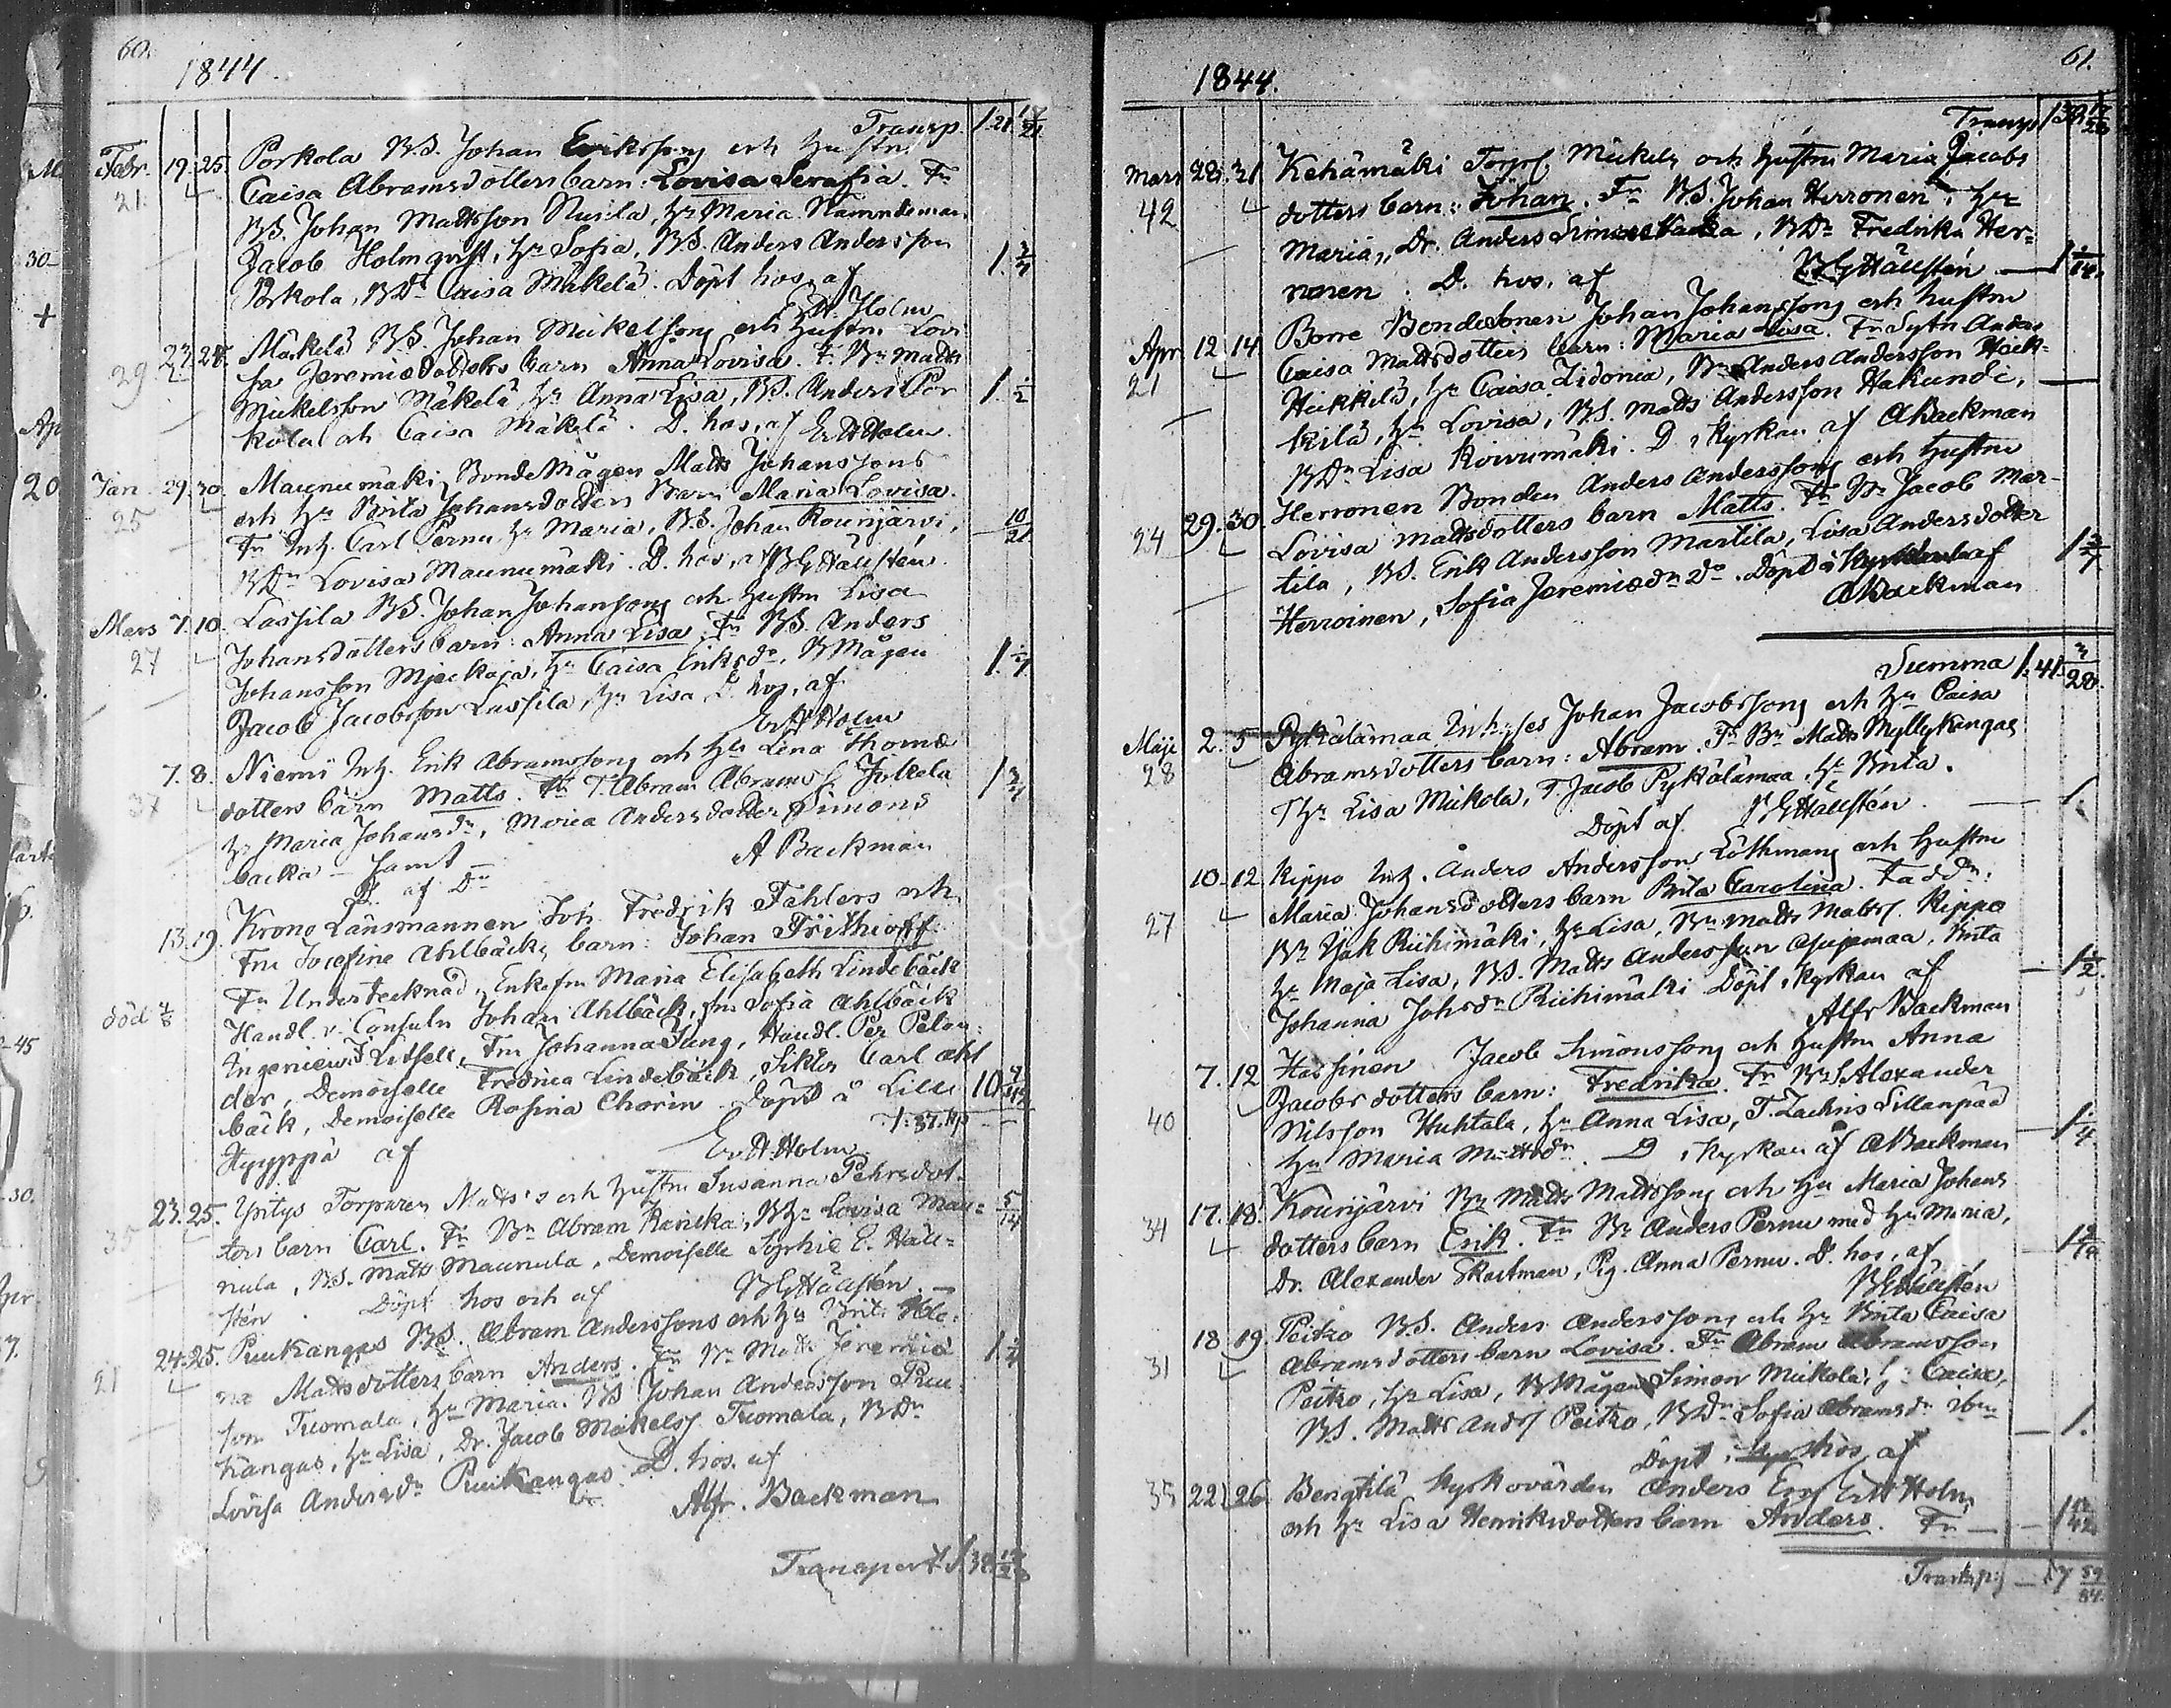 60.
1844.
Transp. 1.21 17/21
Febr. 19. 25. Porkola B.S. Johan Erikssons och hustrus
21. Caisa Abramsdotters barn: Lovisa Serafia. Fr
BS. Johan Mattsson Rusila, hu Maria. Nämndeman
Jacob Holmqvist, hu Sofia, BS. Anders Andersson
Porkola, BDr Caisa Mäkelä. Döpt hos, af
Er. A. Holm
27. 28. Mäkelä BS. Johan Mickelssons och hustru Lovi-
29 sa Jeremiædotters barn Anna Lovisa. Fr. Bn Matts
Mickelsson Mäkelä hu Anna Lisa, BS. Anders Por 1. 1/2
kola och Caisa Mäkelä. D. hos, af Er A Holm.
Jan. 29. 30. Maunumäki BondeMågen Matts Johanssons
25 och hu Brita Johansdotters Barn Maria Lovisa.
Fr Inh. Carl Pernu hu Maria, B.S. Johan Kounjärvi, 10/21
BDr Lovisa Maunumäki. D. hos, af BG Hällstén.
Mars 7. 10. Lassila BS. Johan Johanssons och hustru Lisa
27 Johansdotters barn: Anna Lisa. Fr BS. Anders
Johansson Mjeckoja, hu Caisa Eriksdr, BMågen
Jacob Jacobsson Lassila, hu Lisa D. hos, af
Er A Holm
7. 8. Niemi Inh. Erik Abramssons och hu Lena Thomæ
37 dotters barn Matts. Fr T. Abram Abramss Jylkelä
hu Maria Johansdr, Maria Andersdotter Simons
backa – samt –
D. af Dn A Backman
13. 19. Krono Länsmannen Joh. Fredrik Fahlers och
Fru Josefine Ahlbäcks barn: Johan Frithioff.
Fr Undertecknad, Enkefru Maria Elisabeth Lindebäck
död 4/8 Handl. v. Consuln Johan Ahlbäck, fru Sofia Ahlbäck
Ingenieur Litsell, Fru Johanna Jung, Handl. Per Pelon-
der, Demoiselle Fredrica Lindebäck, Sikter Carl Ahl
bäck, Demoiselle Rosina Chorin. Döpt å Lilli
Hyyppä af Er. A. Holm
23. 25. Yritys Torparen Matts's och hustru Susanna Pehrsdot-
35 ters barn Carl. Fr Bn Abram Ranika, BHu Lovisa Mau- 5/14
nula, B.S. Matts Maunula, Demoiselle Sophie E. Häll-
stén. Döpt hos och af BG Hällstén
24. 25. Puukangas BS. Abram Anderssons och hu Brita Hele-
21 na Mattsdotters barn Anders. Fr Bn Matts Jeremiæ
son Tuomala, hu Maria. BS Johan Andersson Puu-
kangas, hu Lisa, Dr. Jacob Mickelss Tuomala, BDr
Lovisa Andersdr Puukangas. D. hos. af
Alfr. Backman
Transport
61.
1844.
Transp.
Mars 28. 31 Kehämäki Torps Mickels och hustru Maria Jacobs
42 dotters barn: Johan. Fr BS. Johan Herronen, hu
Maria, Dr. Anders Simonsbacka, BDr Fredrika Her-
ronen. D. hos, af BG Hällstén 1 1/14.
Apr. 12 14 Borre BondeSonen Johan Johanssons och hustru
21 Caisa Mattsdotters barn: Maria Lisa. Fr Sytn Anders
Heikkilä, hu Caisa Zidonia, Bn Anders Andersson Heik-
kilä, hu Lovisa, BS. Matts Andersson Hakundi,
BDr Lisa Koivumäki. D. i kyrkan af ABackman
29. 30. Herronen Bonden Anders Anderssons och hustru
24 Lovisa Mattsdotters barn Matts. Fr Bn Jacob Mar-
tila, BS. Erik Andersson Martila, Lisa Andersdotter
Herroinen, Sofia Jeremiædr Do. Döpt i Kyrkan af
ABackman
Summa 1:41. 3/280.
Maji 2. 5 Pykälämaa Inhyses Johan Jacobssons och hu Caisa
28 Abramsdotters barn: Abram. Fr Bn Matts Myllykangas
THu Lisa Mickola, T. Jacob Pykälämaa, hu Brita.
Döpt af BG Hällstén. 1.
10. 12. Rippo Inh. Anders Andersson Löthmans och hustru
27 Maria Johansdotters barn Brita Carolina. Faddr:
Bn Isak Riihimäki, hu Lisa, Bn Matts Mattss. Rippo
hu Maja Lisa, BS. Matts Andersson Ojajemaa, Brita 1 1/2.
Johanna Johsdr Riihimäki Döpt i kyrkan af
Alfr Backman
7. 12 Hassinen Jacob Simonssons och hustru Anna
Jacobsdotters barn: Fredrika. Fr BS Alexander
40 Nilsson Huhtala, hu Anna Lisa, T. Zachris Sillanpää
hu Maria Mattsdr. D. i kyrkan af ABackman 1 1/4
17. 18. Kounjärvi Bn Matts Mattssons och hu Maria Johans
34 dotters barn Erik. Fr Bn Anders Pernu med hu Maria,
Dr. Alexander Skartman, Pig. Anna Pernu. D. hos, af
BG Hällstén
18 19. Peitzo B.S. Anders Anderssons och hu Brita Caisa
31 Abramsdotters barn Lovisa. Fr Abram Abramsson
Peitzo, hu Lisa, BMågen Simon Mickola, hu Caisa,
BS. Matts Anders Peitzo, BDr Sofia Abramsdr ibm 1.
Döpt hos af
35 22. 26. Bengtilä Kyrkovärden Anders Er A Holm
och hu Lisa Henriksdotters barn Anders. Fr –
Transp: